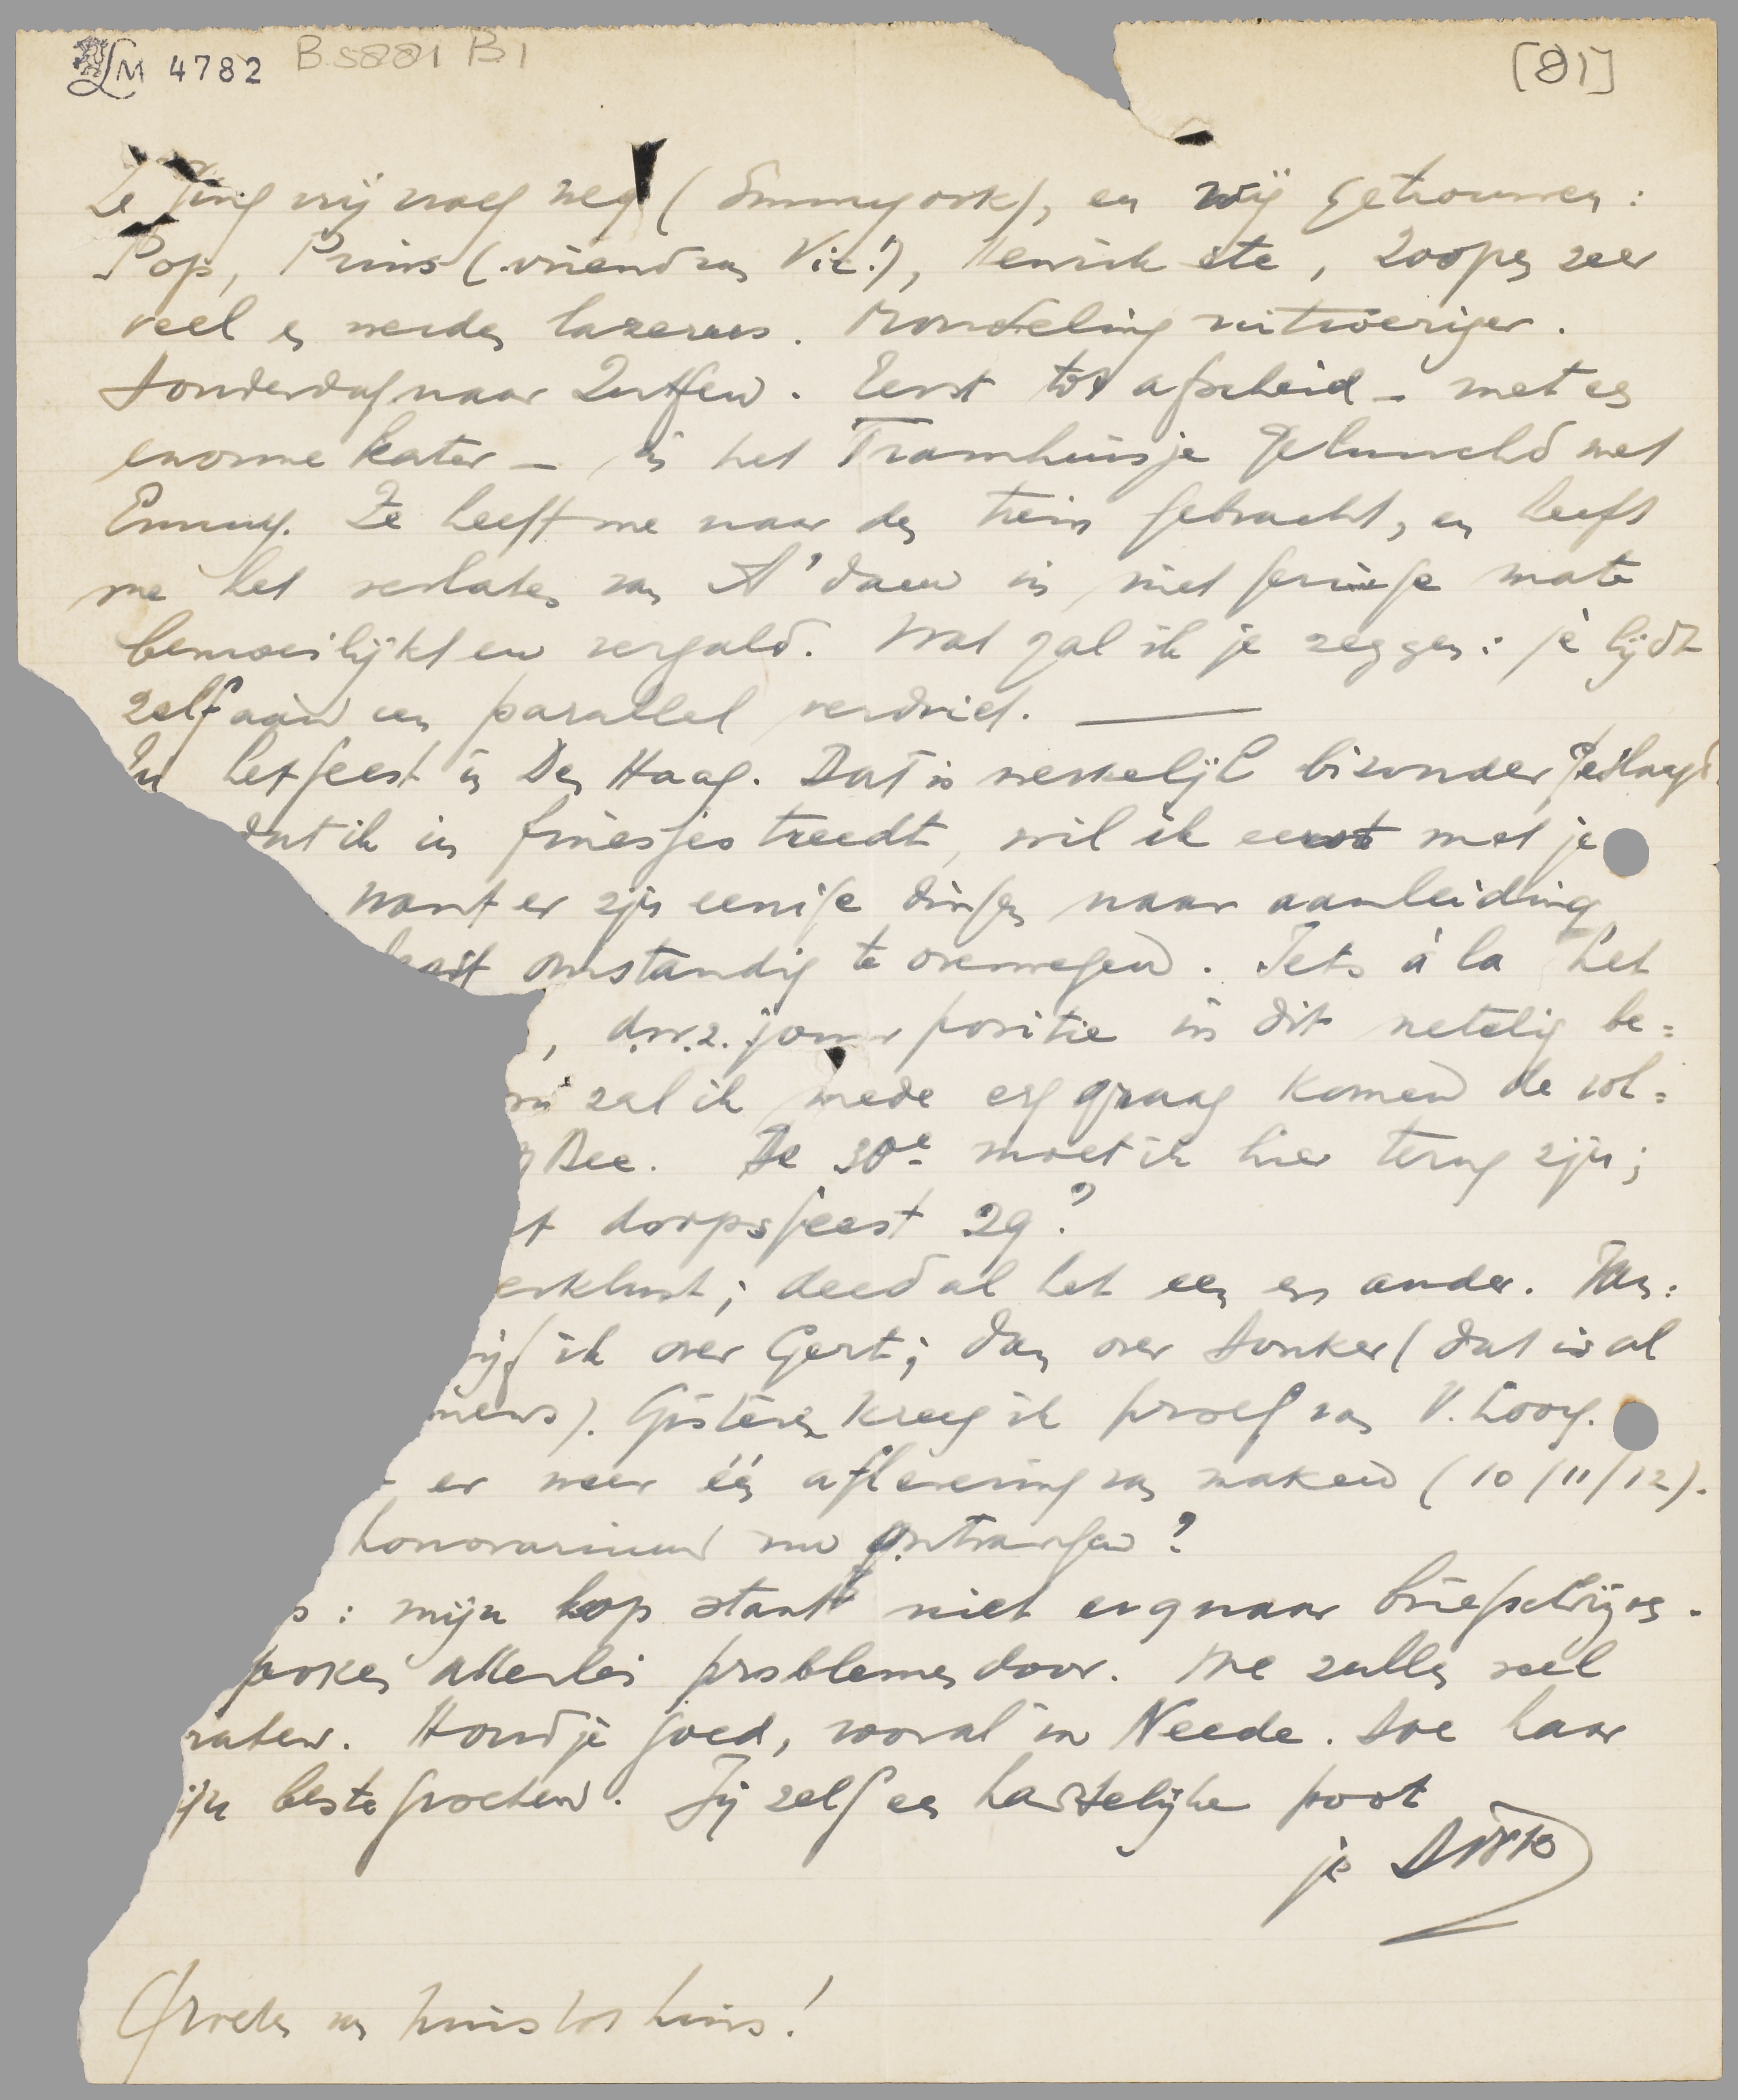 LM 4782 B 5881 B1
[81]
Ze ging vrij vroeg weg (Emmy ook), en wij getrouwen:
Pop, Prins (vriend van Vic!), Henrik etc, zoopen zeer
veel en werden lazerus. Mondeling uitvoeriger.
Donderdag naar Zutfen. Eerst tot afscheid – met een
enorme kater – in het Tramhuisje geluncht met
Emmy. Ze heeft me naar den trein gebracht, en heeft
me het verlaten van A'dam in niet geringe mate
bemoeilijkt en vergald. Wat zal ik je zeggen: jè lijdt
zelf aan een parallel verdriet. —
Nu het feest in Den Haag. Dat is werkelijk bizonder geslaagd.
dat ik in finesses treedt, wil ik eerst met je
want er zijn eenige dingen naar aanleiding
omstandig te overwegen. Iets à la het
, d.w.z. jouw positie in dit netelig be=
zal ik mede erg graag komen de vol=
Dec. De 30e moet ik hier terug zijn;
t dorpsfeest 29?
erklust; deed al het een en ander. Van:
ijf ik over Gert; dan over Donker (dat is al
nieuws). Gisteren kreeg ik proef van V. Looy.
er weer één aflevering van maken (10/11/12).
honorarium nu ontvangen?
s: mijn kop stant niet erg naar briefschrijven.
spoken allerlei problemen door. We zullen veel
praten. Houd je goed, vooral in Neede. Doe haar
mijn beste groeten. Jij zelf een hartelijke poot
je Dirk
Groeten van huis tot huis!